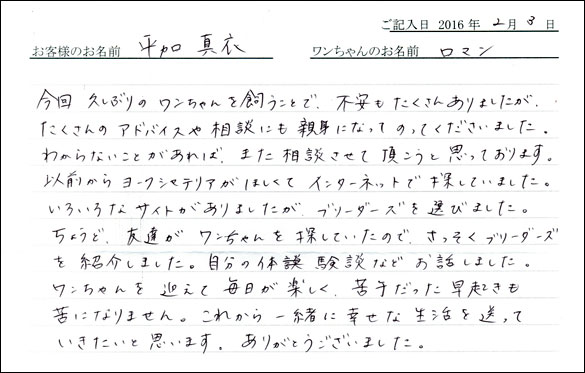 ご記入日 2016 年 2 月 3 日
お客様のお名前 平加 真衣 ワンちゃんのお名前 ロマン
今回 久しぶりの ワンちゃんを飼うことで、不安も たくさん ありましたが、
たくさんの アドバイスや 相談にも 親身になって のってくださいました。
わからないことがあれば、また 相談させて 頂こうと 思っております。
以前から ヨークシャテリアが ほしくて インターネットで 探していました。
いろいろな サイトが ありましたが、ブリーダーズを 選びました。
ちょうど、友達が ワンちゃんを 探していたので、さっそく ブリーダーズ
を 紹介しました。自分の 体談 験談など お話しました。
ワンちゃんを 迎えて 毎日が 楽しく、苦手だった 早起きも
苦になりません。これから 一緒に 幸せな 生活を 送って
いきたいと 思います。ありがとうございました。